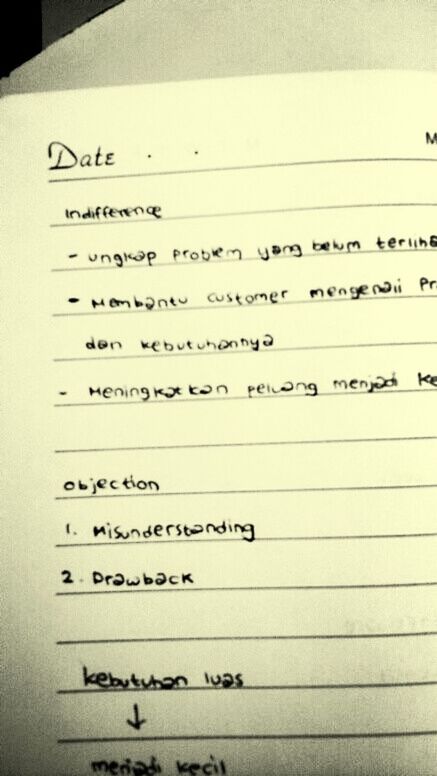 Date . .
M
Indifference
- ungkap problem yang belum
- Membantu customer mengenali
dan kebutuhannya
- Meningkatkan peluang menjadi
objection
1. Misunderstanding
2. Drawback
kebutuhan luas
↓
menjadi kecil